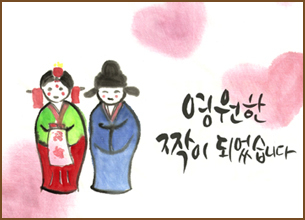 영원한
짝이 되었습니다